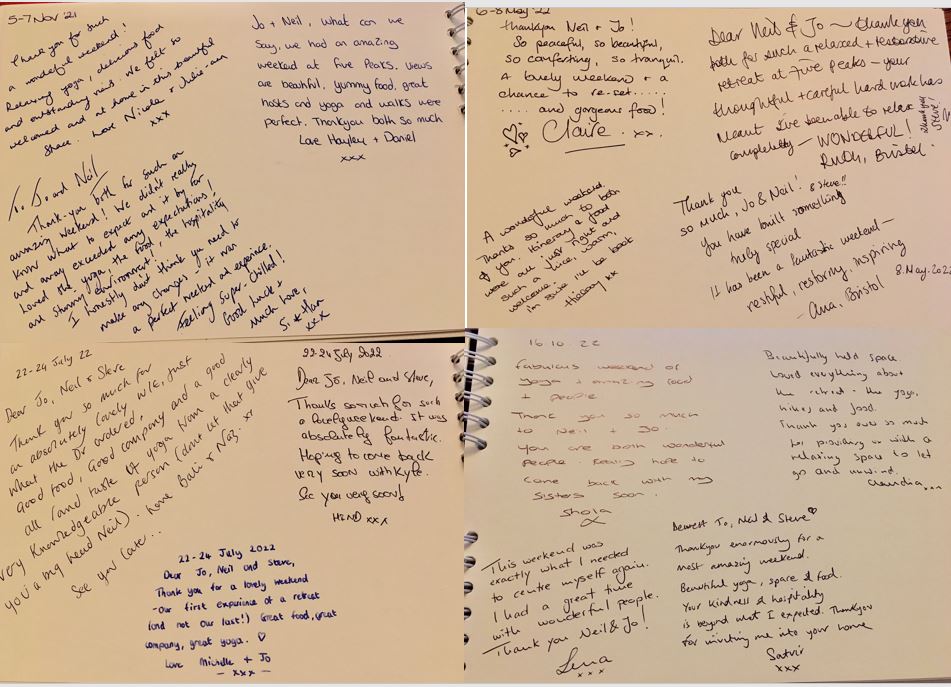 5-7 Nov '21
Thank you for such
a wonderful weekend!
Relaxing yoga, delicious food
and outstanding views. We felt so
welcomed and at home in this beautiful
space. Love Nicola & Julie-ann
xxx
Jo + Neil, what can we
say, we had an amazing
weekend at five Peaks. Views
are beautiful, yummy food, great
hosts and yoga and walks were
perfect. Thankyou both so much
Love Hayley + Daniel
xxx
To Jo and Neil
Thank-you both for such an
amazing weekend! We didn't really
know what to expect and it by far
and away exceeded any expectations!
Loved the yoga, the food, the hospitality
and stunning environment!
I honestly don't think you need to
make any changes - it was
a perfect weekend and experience.
Feeling super-chilled!
Good luck +
much love,
Si & Han
xxx
6-8 May '22
thankyou Neil & Jo!
So peaceful, so beautiful,
so comforting, so tranquil.
A lovely weekend & a
chance to re-set.....
.... and gorgeous food!
Claire. xx.
Dear Neil & Jo ~ thank you
both for such a relaxed + restorative
retreat at Five Peaks - your
thoughtful + careful hard work has
meant I've been able to relax
completely - WONDERFUL!
Ruth, Bristol.
thank you
Steve!
A wonderful weekend.
Thanks so much to both
of you. Itinerary & food
were all just right and
such a nice, warm,
welcome. I'll be back
I'm sure
xx
Thank you
so much, Jo & Neil! & Steve!!
You have built something
truly special
It has been a fantastic weekend -
restful, restoring, inspiring
- Ana, Bristol
8. May. 2022
22-24 July 22
Dear Jo, Neil & Steve
Thank you so much for
an absolutely lovely w/e, just
what the Dr ordered.
Good food, Good company and a good
all round taste of yoga from a clearly
very knowledgeable person (dont let that give
you a big head Neil). Love & Naz. xx
See you later...
22-24 July 2022.
Dear Jo, Neil and Steve,
Thanks so much for such
a lovely weekend. it was
absolutely fantastic.
Hoping to come back
very soon with Kyle.
See you very soon!
HIND xxx
22-24 July 2022
Dear Jo, Neil and Steve,
Thank you for a lovely weekend
-Our first experience of a retreat
(and not our last!) Great food, great
company, great yoga. ♡
Love Michelle + Jo
- xxx -
16.10.22
Fabulous weekend of
yoga + amazing food
+ people.
Thank you so much
to Neil + Jo.
You are both wonderful
people. Really hope to
come back with my
sisters soon.
Shola
x
Beautifully held space.
Loved everything about
the retreat - the yoga,
hikes and food.
Thank you ever so much
for providing us with a
relaxing space to let
go and unwind.
Claudia...
This weekend was
exactly what I needed
to centre myself again.
I had a great time
with wonderful people.
Thank you Neil & Jo!
Lena
xxx
Dearest Jo, Neil & Steve♡
Thankyou enormously for a
most amazing weekend.
Beautiful yoga, space & food.
Your kindness & hospitality
is beyond what I expected. Thankyou
for inviting me into your home
Satvir
xxx